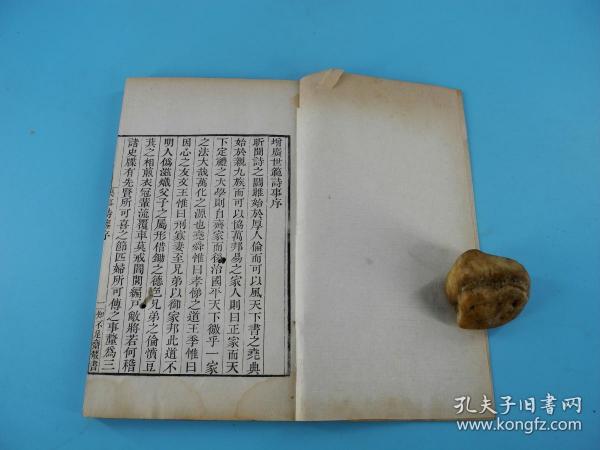 增廣世範詩事序
昕聞詩之關雎始於厚人倫而可以風天下書之堯典
始於親九族而可以協萬邦易之家人則曰正家而天
下定禮之大學則自齊家而後治國平天下微乎一家
之法大哉萬化之源也堯舜惟曰孝悌之道王季惟曰
因心之友文王惟曰刑寡妻至兄弟以御家邦此道不
明人僞滋熾父子之屬形借鋤之德色兄弟之倫憤豆
萁之相煎衣冠輩流覆車莫戒閭閻編戶敝將若何稽
諸史牒有先賢所可喜之節匹婦所可傳之事釐爲三
詩事序
一 知不足齋叢書
孔夫子旧书网
www.kongfz.com